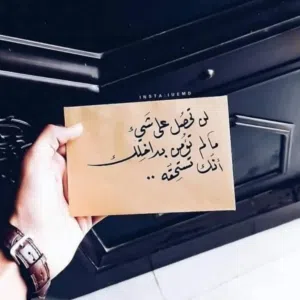 INSTA.IDEMD
لن تحصل على شيء
ما لم تؤمن بداخلك
أنك تستحقه ..